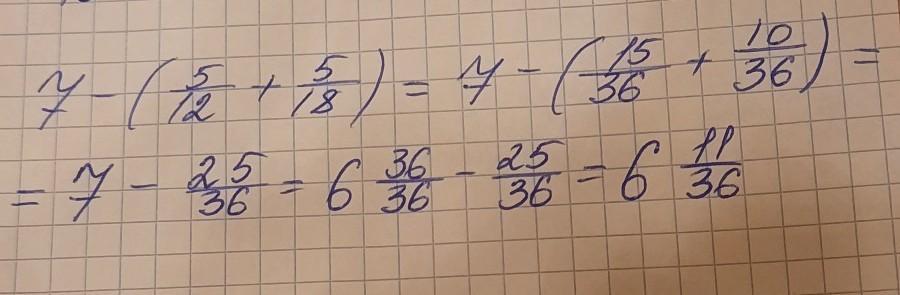 7 - (5/12 + 5/18) = 7 - (15/36 + 10/36) =
= 7 - 25/36 = 6 36/36 - 25/36 = 6 11/36